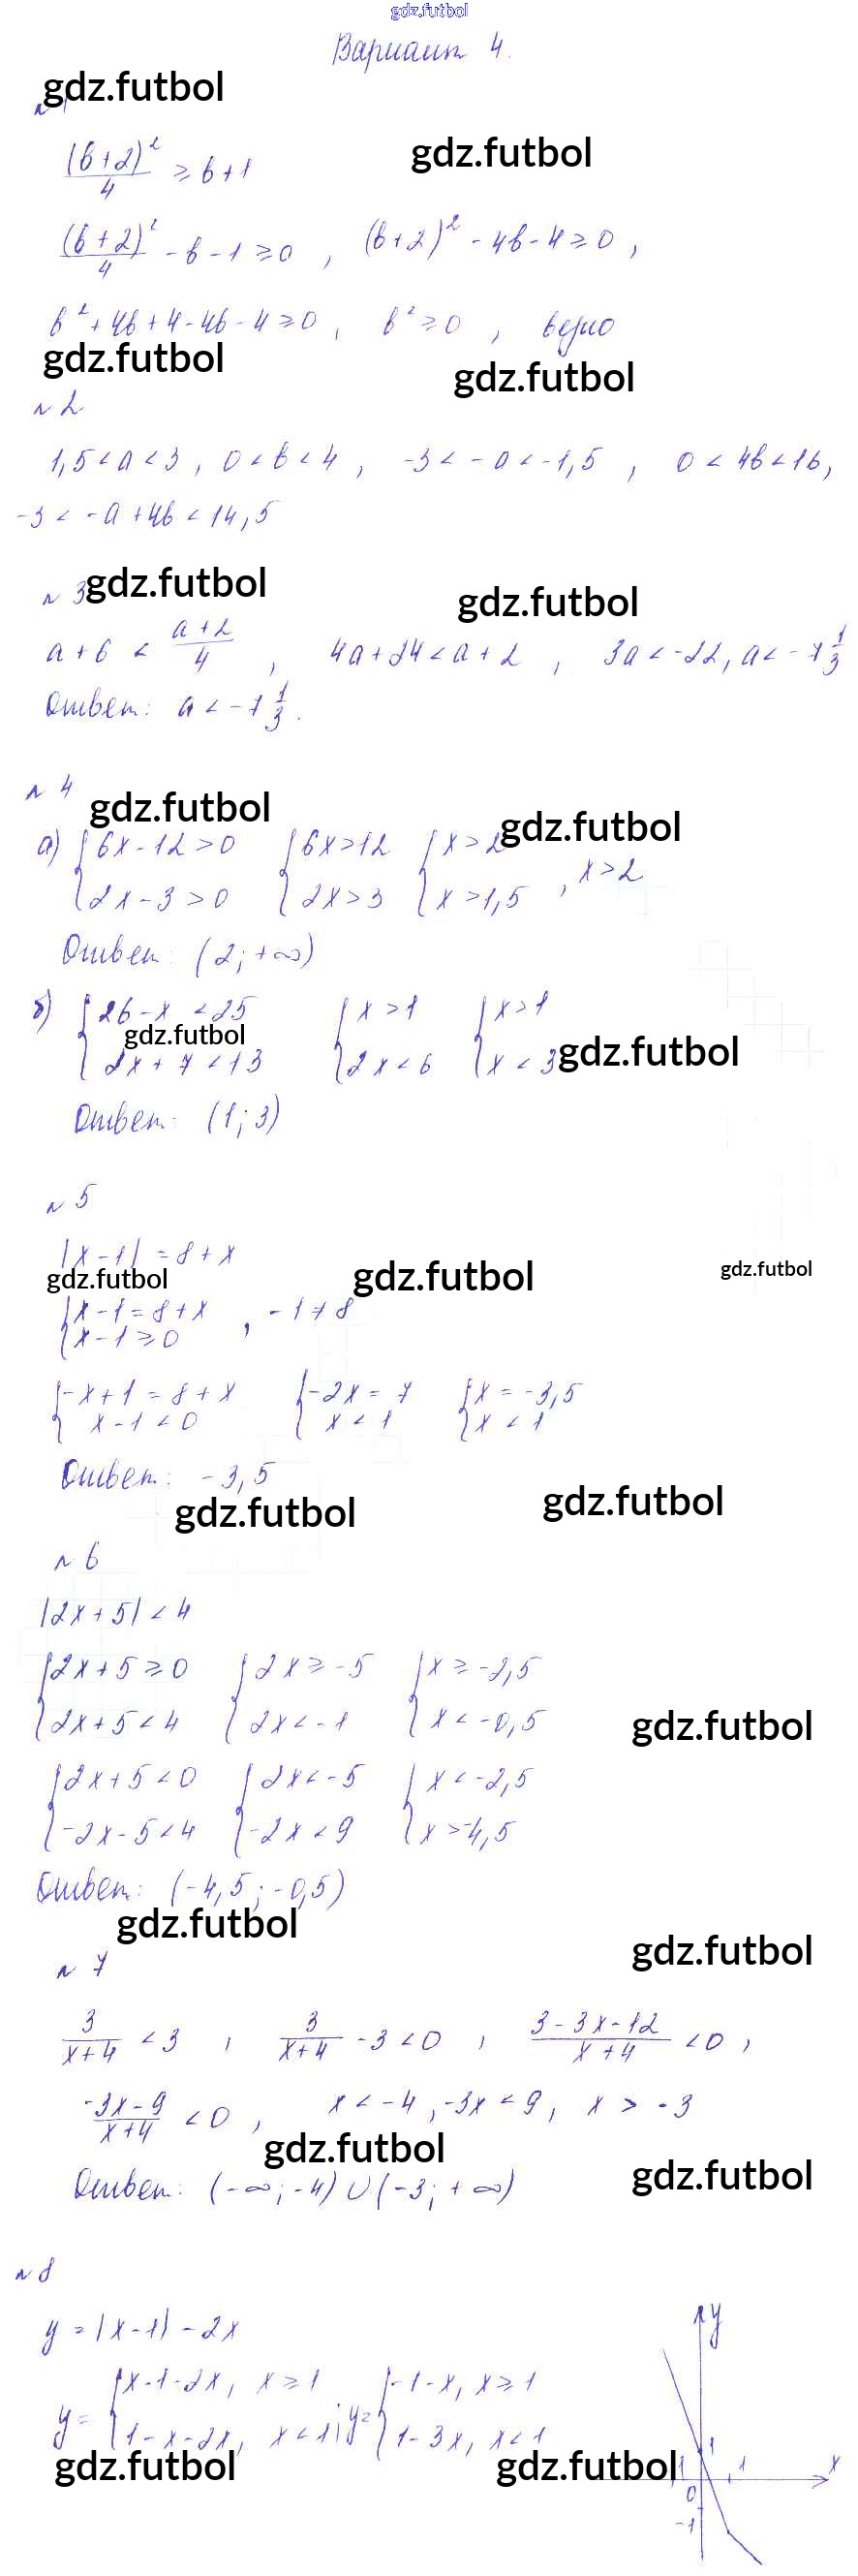 gdz.futbol
Вариант 4.
gdz.futbol
№ 1
gdz.futbol
(b+2)²/4 ≥ b+1
(b+2)²/4 - b - 1 ≥ 0 , (b+2)² - 4b - 4 ≥ 0 ,
b² + 4b + 4 - 4b - 4 ≥ 0 , b² ≥ 0 , верно
gdz.futbol
gdz.futbol
№ 2
1,5 < a < 3 , 0 < b < 4 , -3 < -a < -1,5 , 0 < 4b < 16,
-3 < -a + 4b < 14,5
№ 3 gdz.futbol
gdz.futbol
a + 6 < (a+2)/4 , 4a + 24 < a + 2 , 3a < -22, a < -7 1/3
Ответ: a < -7 1/3.
№ 4
gdz.futbol
gdz.futbol
а) { 6x - 12 > 0 { 6x > 12 { x > 2
{ 2x - 3 > 0 { 2x > 3 { x > 1,5 , x > 2
Ответ: (2; +∞)
б) { 26 - x < 25 { x > 1 { x > 1
gdz.futbol
{ 2x + 7 < 13 { 2x < 6 { x < 3
gdz.futbol
Ответ: (1; 3)
№ 5
|x - 1| = 8 + x
gdz.futbol
gdz.futbol
gdz.futbol
{ x - 1 = 8 + x , -1 ≠ 8
{ x - 1 ≥ 0
{ -x + 1 = 8 + x { -2x = 7 { x = -3,5
{ x - 1 < 0 { x < 1 { x < 1
Ответ: -3,5
gdz.futbol
gdz.futbol
№ 6
|2x + 5| < 4
{ 2x + 5 ≥ 0 { 2x ≥ -5 { x ≥ -2,5
{ 2x + 5 < 4 { 2x < -1 { x < -0,5
gdz.futbol
{ 2x + 5 < 0 { 2x < -5 { x < -2,5
{ -2x - 5 < 4 { -2x < 9 { x > -4,5
Ответ: (-4,5; -0,5)
gdz.futbol
gdz.futbol
№ 7
3/(x+4) < 3 , 3/(x+4) - 3 < 0 , (3 - 3x - 12)/(x+4) < 0 ,
(-3x - 9)/(x+4) < 0 , x < -4 , -3x < 9 , x > -3
gdz.futbol
gdz.futbol
Ответ: (-∞; -4) ∪ (-3; +∞)
№ 8
y = |x - 1| - 2x
y = { x - 1 - 2x, x ≥ 1
{ 1 - x - 2x, x < 1 ; y = { -1 - x, x ≥ 1
{ 1 - 3x, x < 1
gdz.futbol
gdz.futbol
y
1
1
x
0
-1